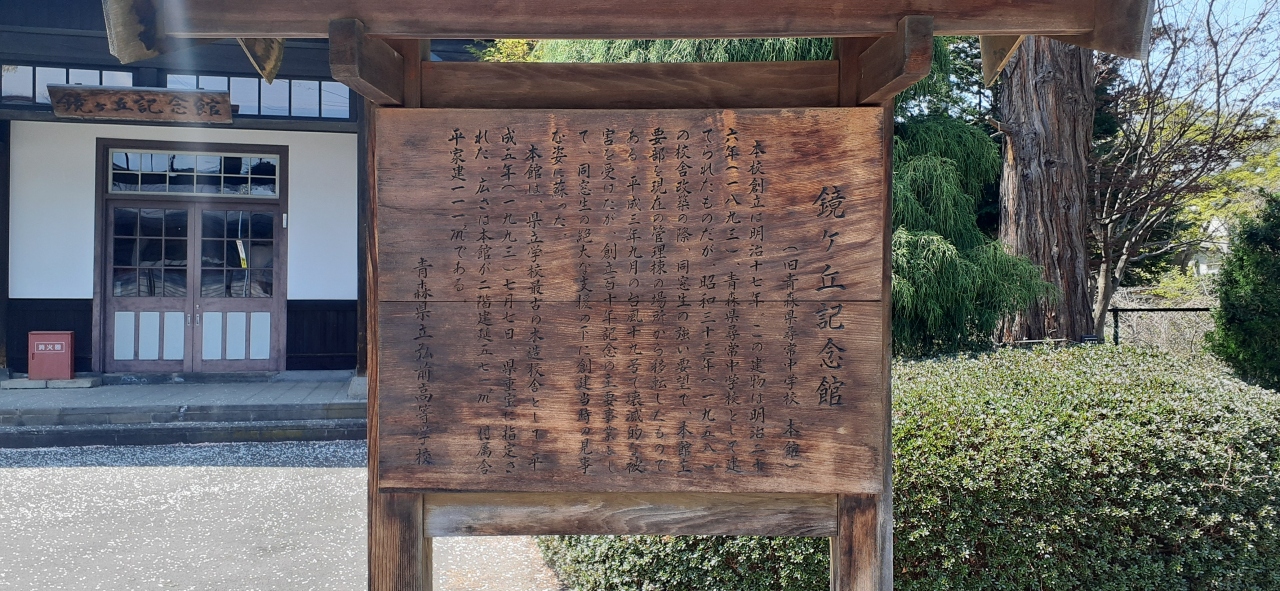 鏡ヶ丘記念館
（旧青森県尋常中学校　本館）
本校創立は明治十七年　この建物は明治二十
六年（一八九三）、青森県尋常中学校として建
てられたものだが　昭和三十三年（一九五八）
の校舎改築の際　同窓生の強い要望で、本館主
要部を現在の管理棟の場所から移転したもので
ある　平成三年九月の台風十九号で壊滅的な被
害を受けたが　創立百十年記念の主要事業とし
て　同窓生の絶大な支援の下に創建当時の見事
な姿に蘇った
本館は、県立学校最古の木造校舎として　平
成五年（一九九三）七月七日　県重宝に指定さ
れた　広さは本館が二階建延五七一㎡　付属舎
平家建一一一㎡である
青森県立弘前高等学校
鏡ヶ丘記念館
消火器